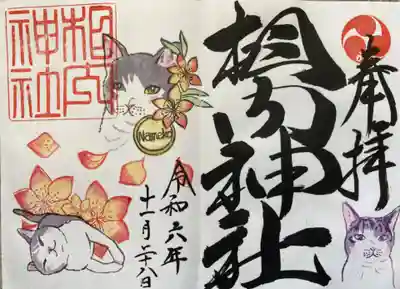 奉拝
相内神社
相内
神社
Namako
令和六年
十一月二十八日